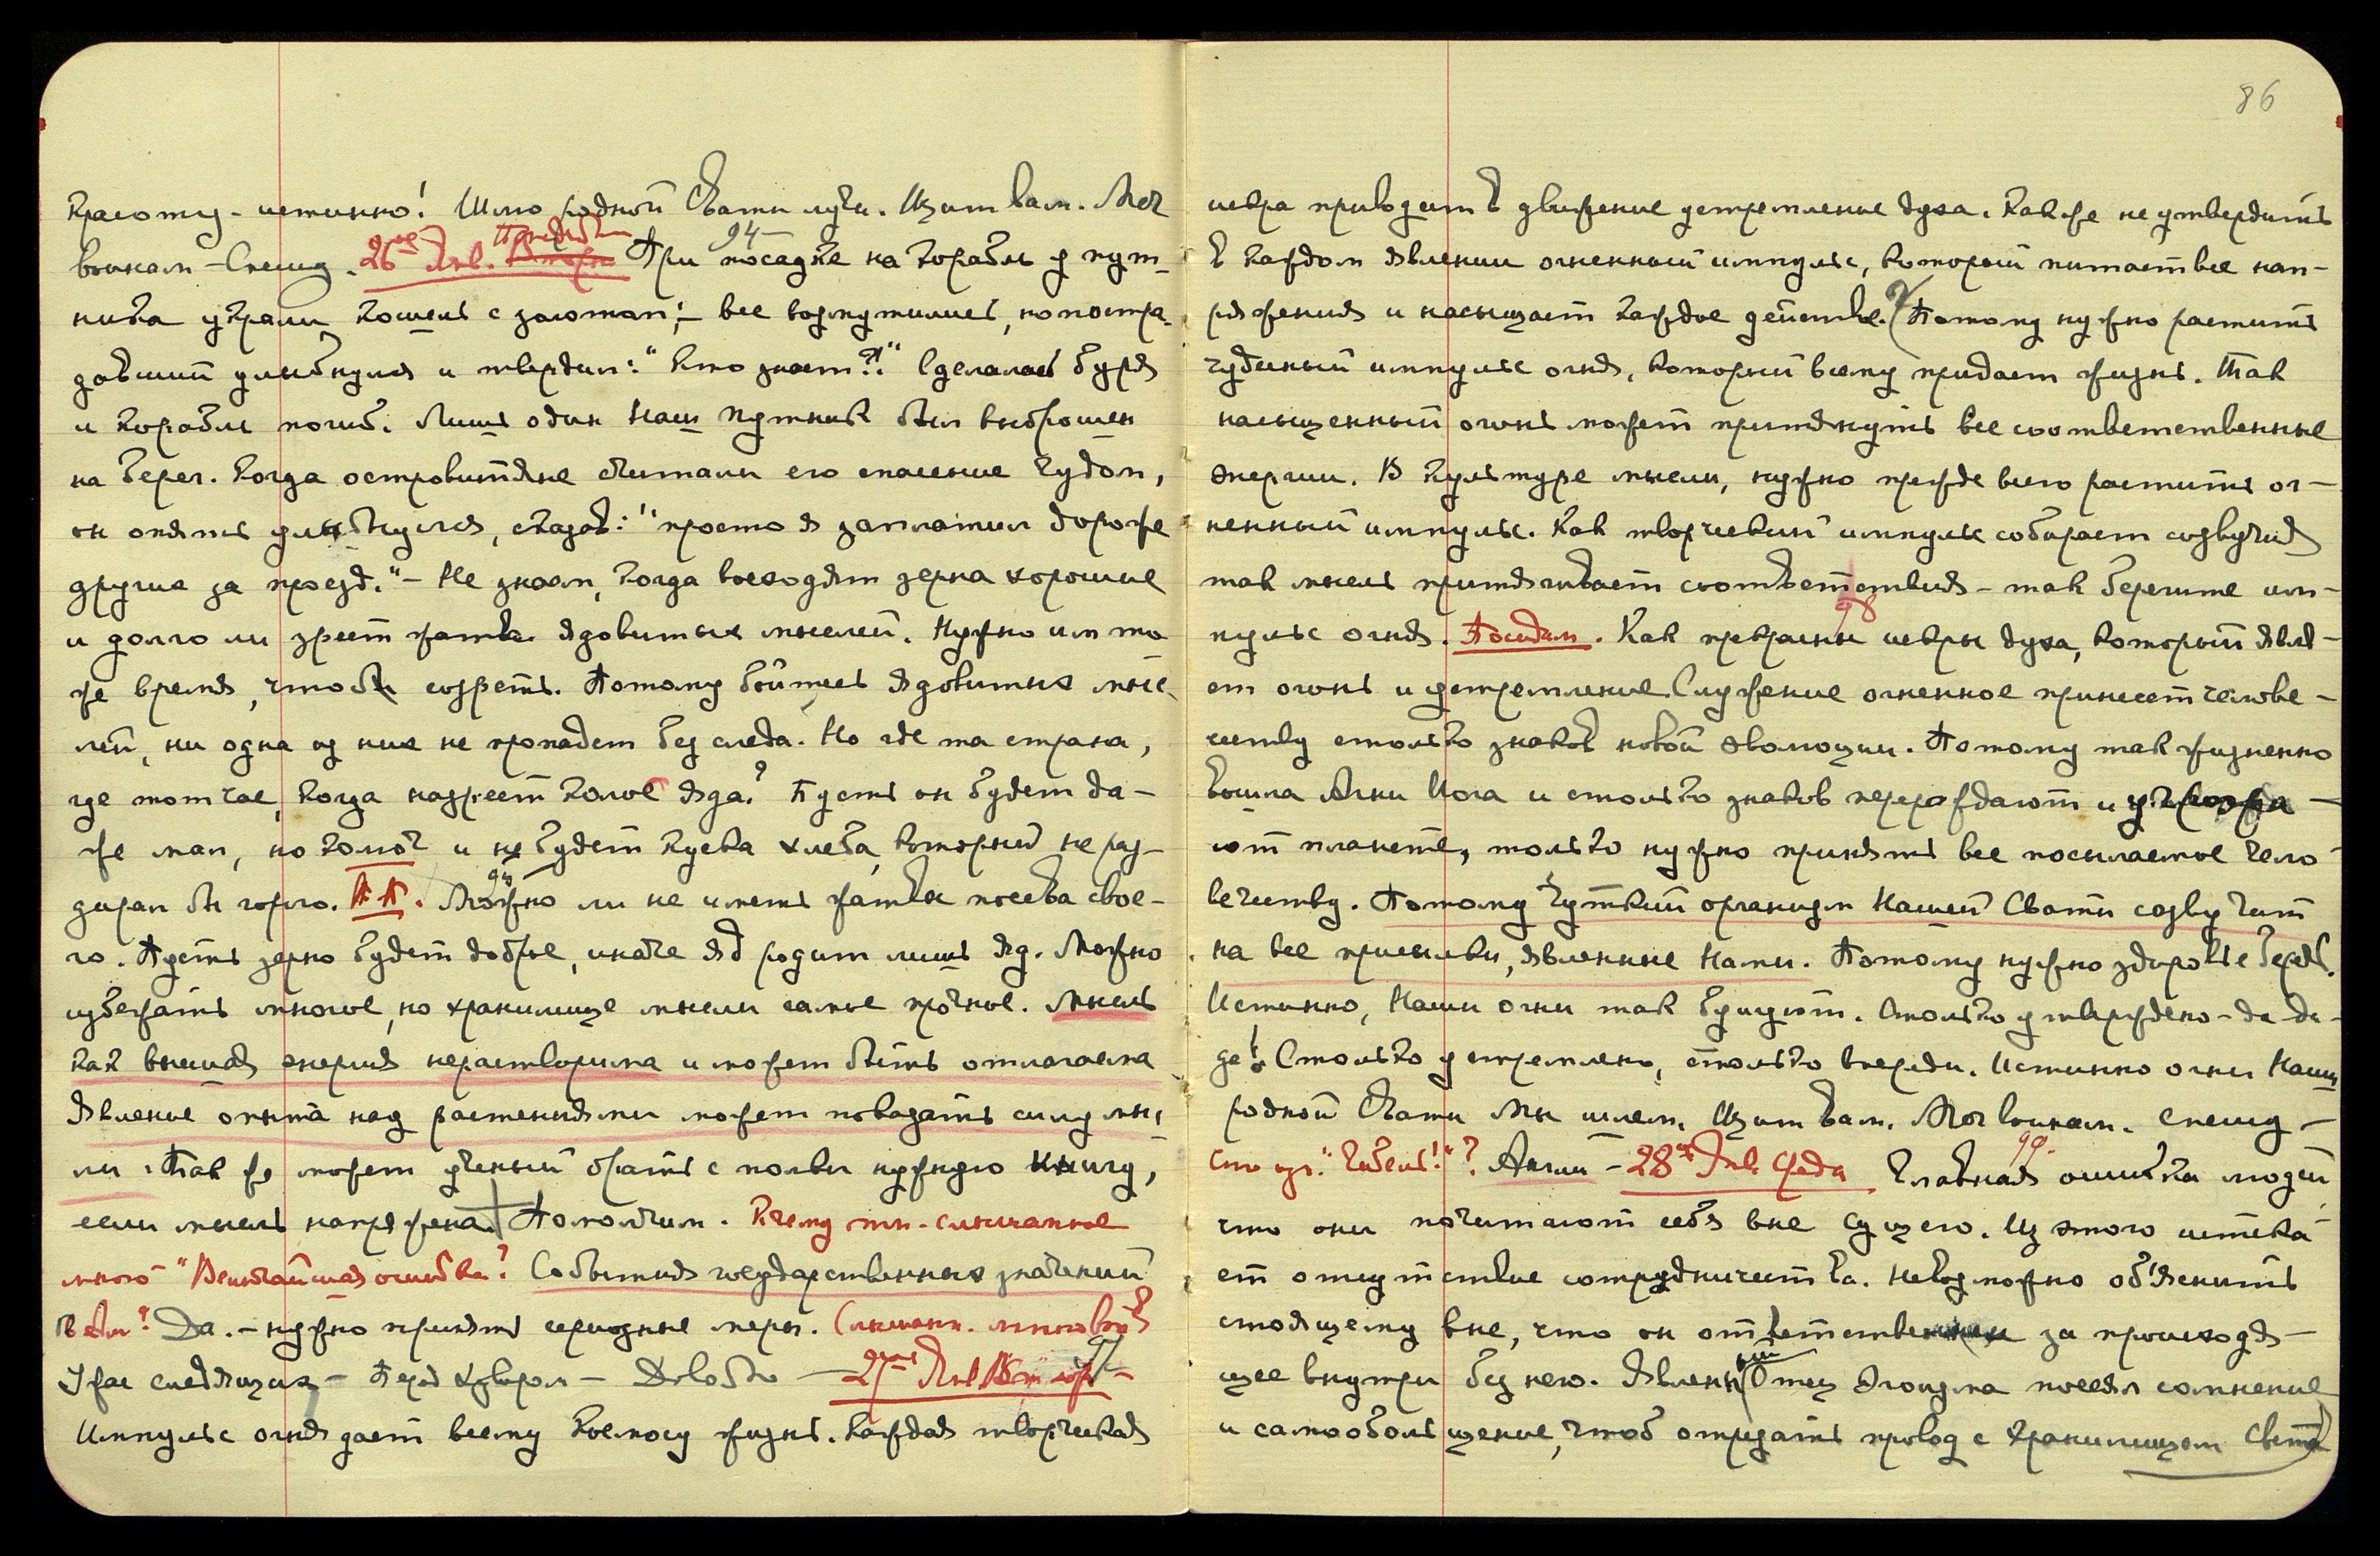 красоту - истинно! Шлю родной Свати лучи. Щит вам. Меч
воинам - Спешу. 26ое Янв. Понедельн. 94
При посадке на корабль у пут-
ника украли кошель с золотом; - все возмутились, но постра-
давший улыбнулся и твердил: "Кто знает?!" Сделалась буря
и корабль погиб. Лишь один наш путник был выброшен
на берег. Когда островитяне считали его спасение чудом,
он опять улыбнулся, сказав: "просто я заплатил дороже
других за проезд." - Не знаем, когда всходят зерна хорошие
и долго ли зреет жатва ядовитых мыслей. Нужно им то
же время, чтобы созреть. Потому бойтесь ядовитых мыс-
лей, ни одна из них не пропадет без следа. Но где та страна,
где тот час, когда назреет колос яда? Пусть он будет да-
же мал, но колюч и не будет куска хлеба, который не раз-
дирал бы горло. П П. 95 Можно ли не иметь жатвы посева свое-
го. Пусть зерно будет доброе, иначе яд родит лишь яд. Можно
избежать многое, но хранилище мысли самое прочное. Мысль
как высшая энергия нерастворима и может быть отлагаема
Явление опыта над растениями может показать силу мыс-
ли. Так же может ученый брать с полки нужную книгу,
если мысль напряжена. Помолчим. К чему тн. слышанное
мною "Величайшая ошибка? События государственных значений
Да. - нужно принять серьозные меры.
97
Импульс огня дает всему Космосу жизнь. Каждая творческая
86
искра приводит в движение устремление духа. Как же не утвердить
в каждом явлении огненный импульс, который питает все нап-
ряжения и насыщает каждое действие. Потому нужно растить
чудесный импульс огня, который всему придает жизнь. Так
насыщенный огонь может притянуть все соответственные
энергии. В культуре мысли, нужно прежде всего растить ог-
ненный импульс. Как творческий импульс собирает созвучия
так мысль притягивает соответствия - так берегите им-
пульс огня. Посидим. 98 Как прекрасны искры духа, который явля-
ет огонь и устремление. Служение огненное принесет челове-
честву столько знаков новой эволюции. Потому так жизненно
вошла Агни Йога и столько знаков перерождают и
ют планете, только нужно принять все посылаемое чело-
вечеству. Потому чуткий организм Нашей Свати созвучит
на все присылки, явленные Нами. Потому нужно здоровье беречь.
Истинно, Наши огни так бушуют. Столько утверждено - да-да-
да! Столько устремлено, столько впереди. Истинно огни Наши
родной Свати Мы шлем. Щит вам. Меч воинам. Спешу -
28ое Янв. Среда 99. Главная ошибка людей,
что они почитают себя вне сущего. Из этого истека-
ет отсутствие сотрудничества. Невозможно об'яснить
стоящему вне, что он ответственен за происходя-
щее внутри без него. Отец эгоизма посеял сомнение
и самообольщение, чтоб отрезать провод с хранилищем Света